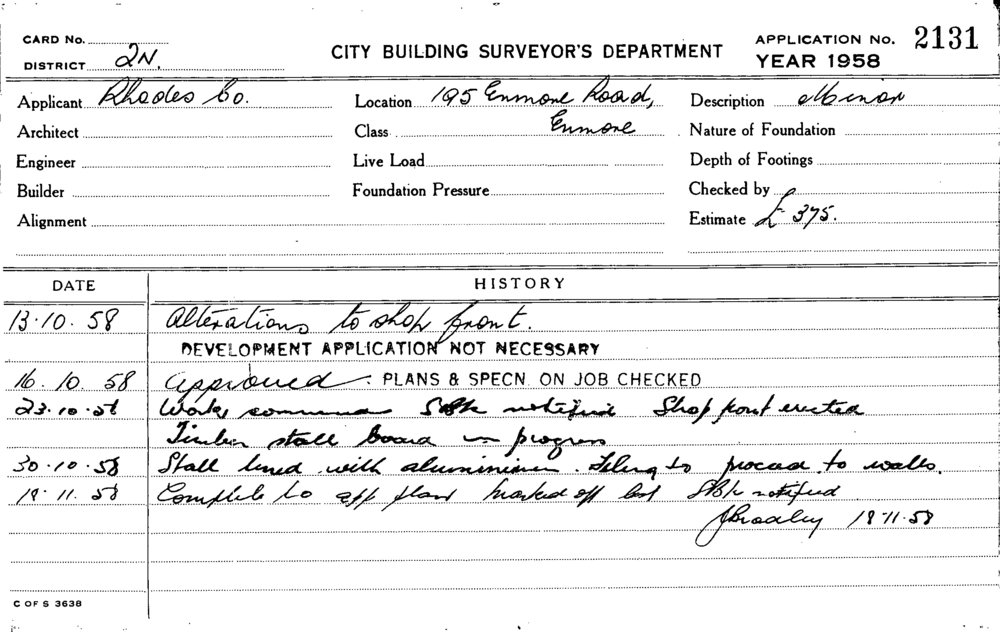 CARD No.
DISTRICT 2N.
CITY BUILDING SURVEYOR'S DEPARTMENT
APPLICATION No. 2131
YEAR 1958
Applicant Rhodes Co.
Location 195 Enmore Road,
Description Minor
Architect
Class Enmore
Nature of Foundation
Engineer
Live Load
Depth of Footings
Builder
Foundation Pressure
Checked by
Alignment
Estimate £ 375.
DATE HISTORY
13.10.58 Alterations to shop front.
DEVELOPMENT APPLICATION NOT NECESSARY
16.10.58 Approved. PLANS & SPECN. ON JOB CHECKED
23.10.58 Work notified Shop front erected
Timber stall board in progress
30.10.58 Stall lined with aluminium. Tiling to proceed to walls.
18.11.58 Complete to app plan marked off notified
18-11-58
C OF S 3638